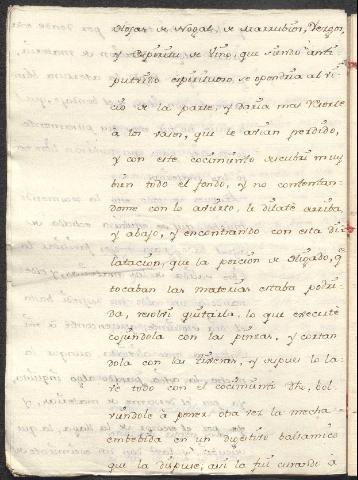 Hojas de Nogal, de Marrubios, Verzon,
y Espiritu de Vino, que siendo anti
putrido espirituoso, se opondria al vi
cio de la parte, y daria mas Resorte
a los vasos, que le avian perdido,
y con este cocimiento descubri muy
bien todo el fondo, y no contentan-
dome con lo avierto, le dilatè arriba,
y abajo, y encontrando con esta di
latacion, que la porcion de Higado, q.e
tocaban las materias estaba podri-
da, resolvi quitarla, lo que executè
cojiendola con las pinzas, y cortan
dola con las tixeras, y despues lo la-
vè todo con el cocimiento dho, bol
viendole à poner otra vez la mecha
embebida en un digestivo balsamico
que la dispuse; asi la fui curando à